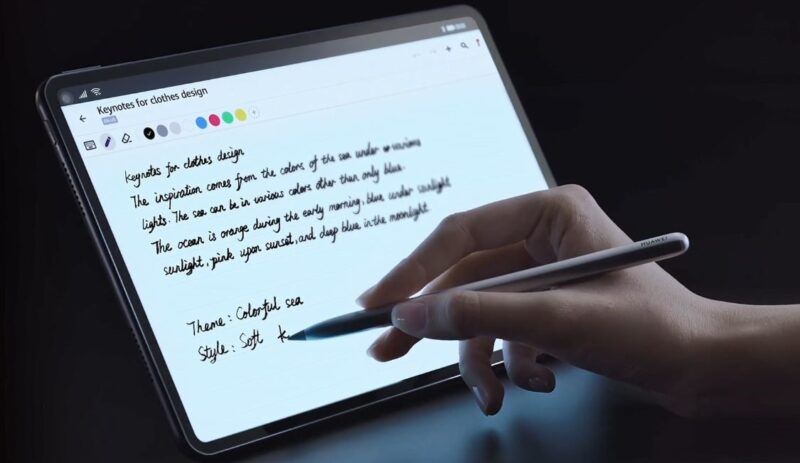 Keynotes for clothes design
Keynotes for clothes design
The inspiration comes from the colors of the sea under various
lights. The sea can be in various colors other than only blue.
The ocean is orange during the early morning, blue under sunlight
sunlight, pink upon sunset, and deep blue in the moonlight.
Theme: Colorful sea
Style: Soft k
HUAWEI